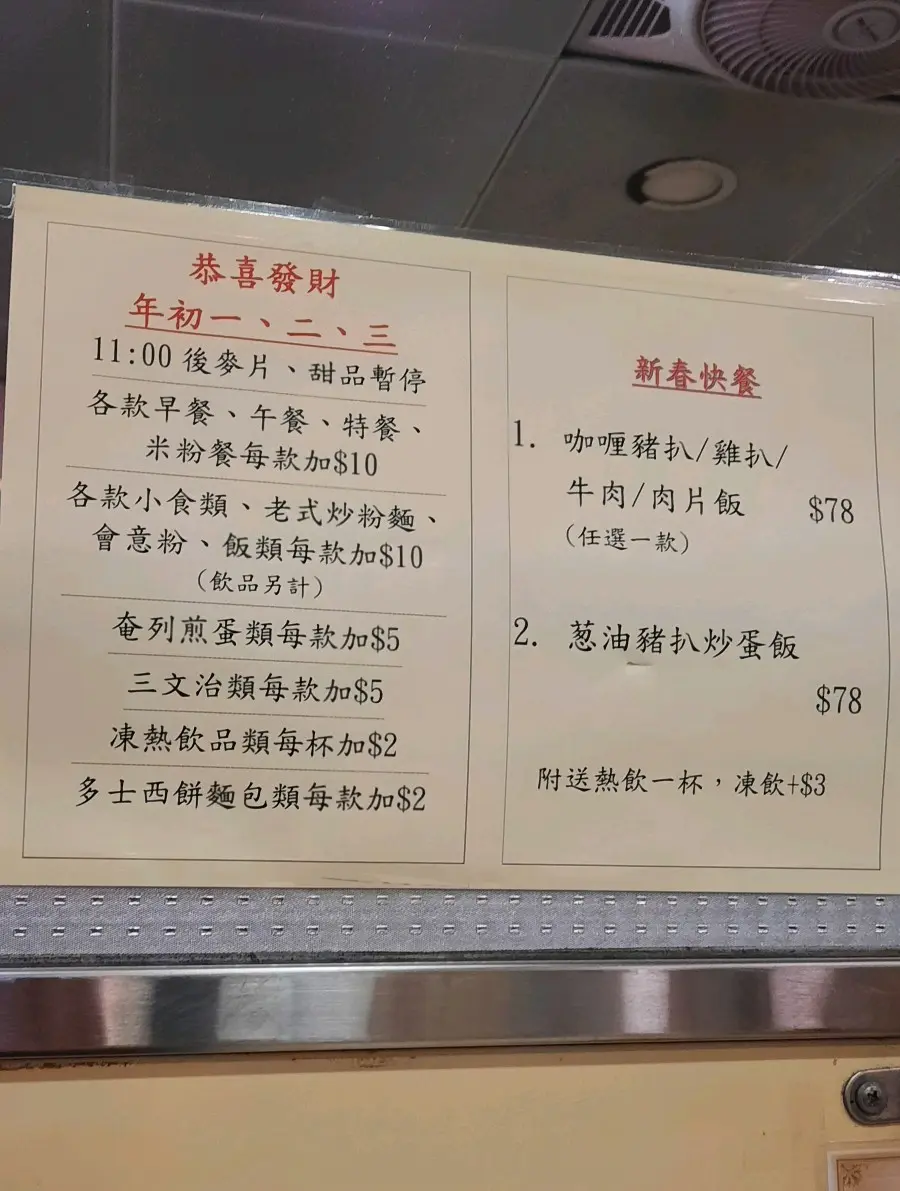 恭喜發財
年初一、二、三
11:00 後麥片、甜品暫停
各款早餐、午餐、特餐、
米粉餐每款加$10
各款小食類、老式炒粉麵、
會意粉、飯類每款加$10
(飲品另計)
奄列煎蛋類每款加$5
三文治類每款加$5
凍熱飲品類每杯加$2
多士西餅麵包類每款加$2
新春快餐
1. 咖喱豬扒/雞扒/
牛肉/肉片飯 $78
(任選一款)
2. 葱油豬扒炒蛋飯
$78
附送熱飲一杯，凍飲+$3